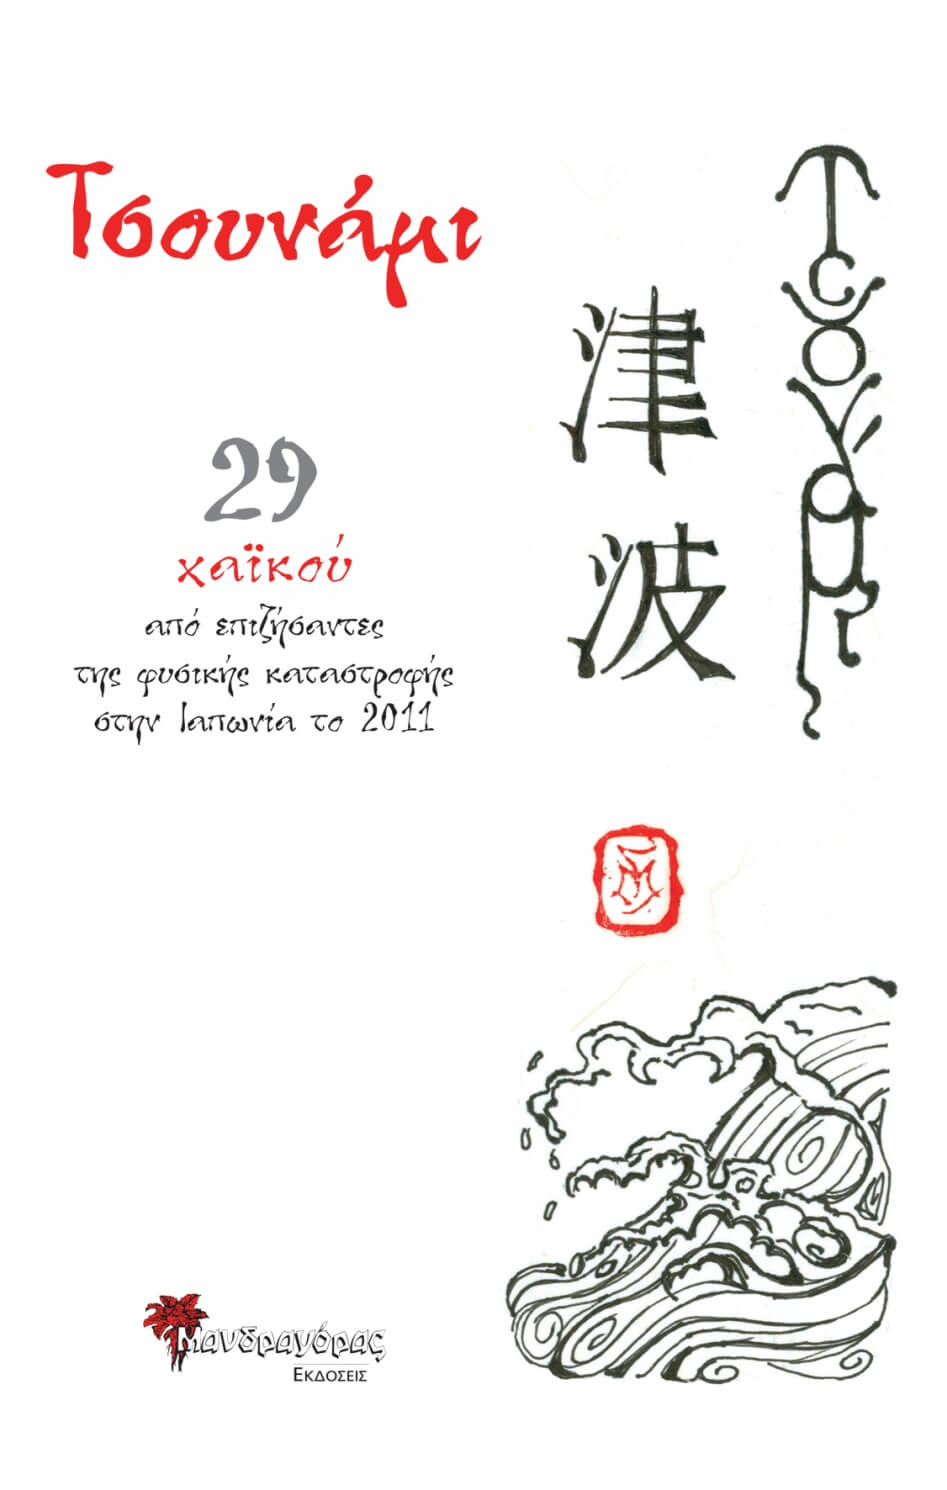 Τσουνάμι
29
χαϊκού
από επιζήσαντες
της φυσικής καταστροφής
στην Ιαπωνία το 2011
津波
Τςουνάμι
Μανδραγόρας
ΕΚΔΟΣΕΙΣ